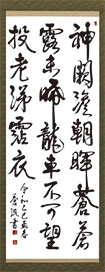 神闕澹朝暉蒼蒼
露未晞龍車不可望
投老涕霑衣
令和乙巳
書